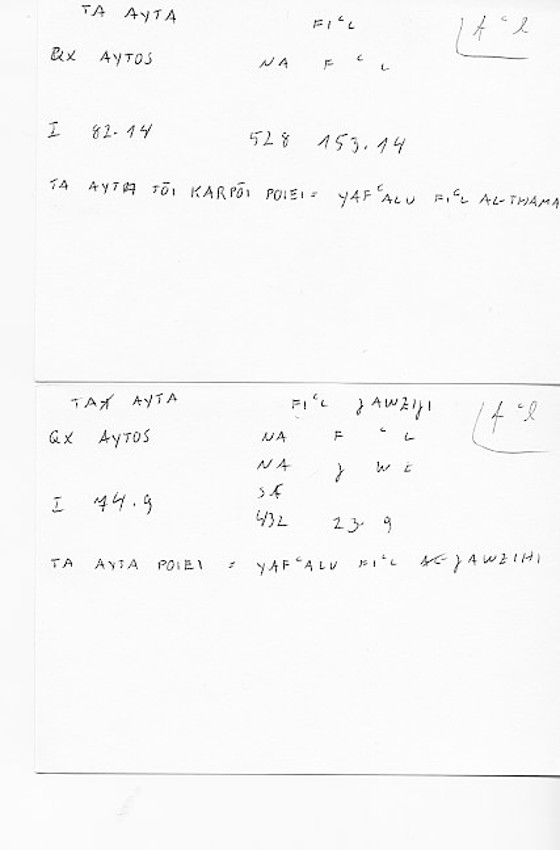 TA AYTA FIᶜL fᶜl
QX AYTOS NA F ᶜ L
I 82.14 528 153.14
TA AYTA TŌI KARPŌI POIEI = YAFᶜALU FIᶜL AL-THAMA
TA AYTA FIᶜL JAWZIHI fᶜl
QX AYTOS NA F ᶜ L
NA J W Z
SE
I 74.9 432 23.9
TA AYTA POIEI = YAFᶜALU FIᶜL JAWZIHI